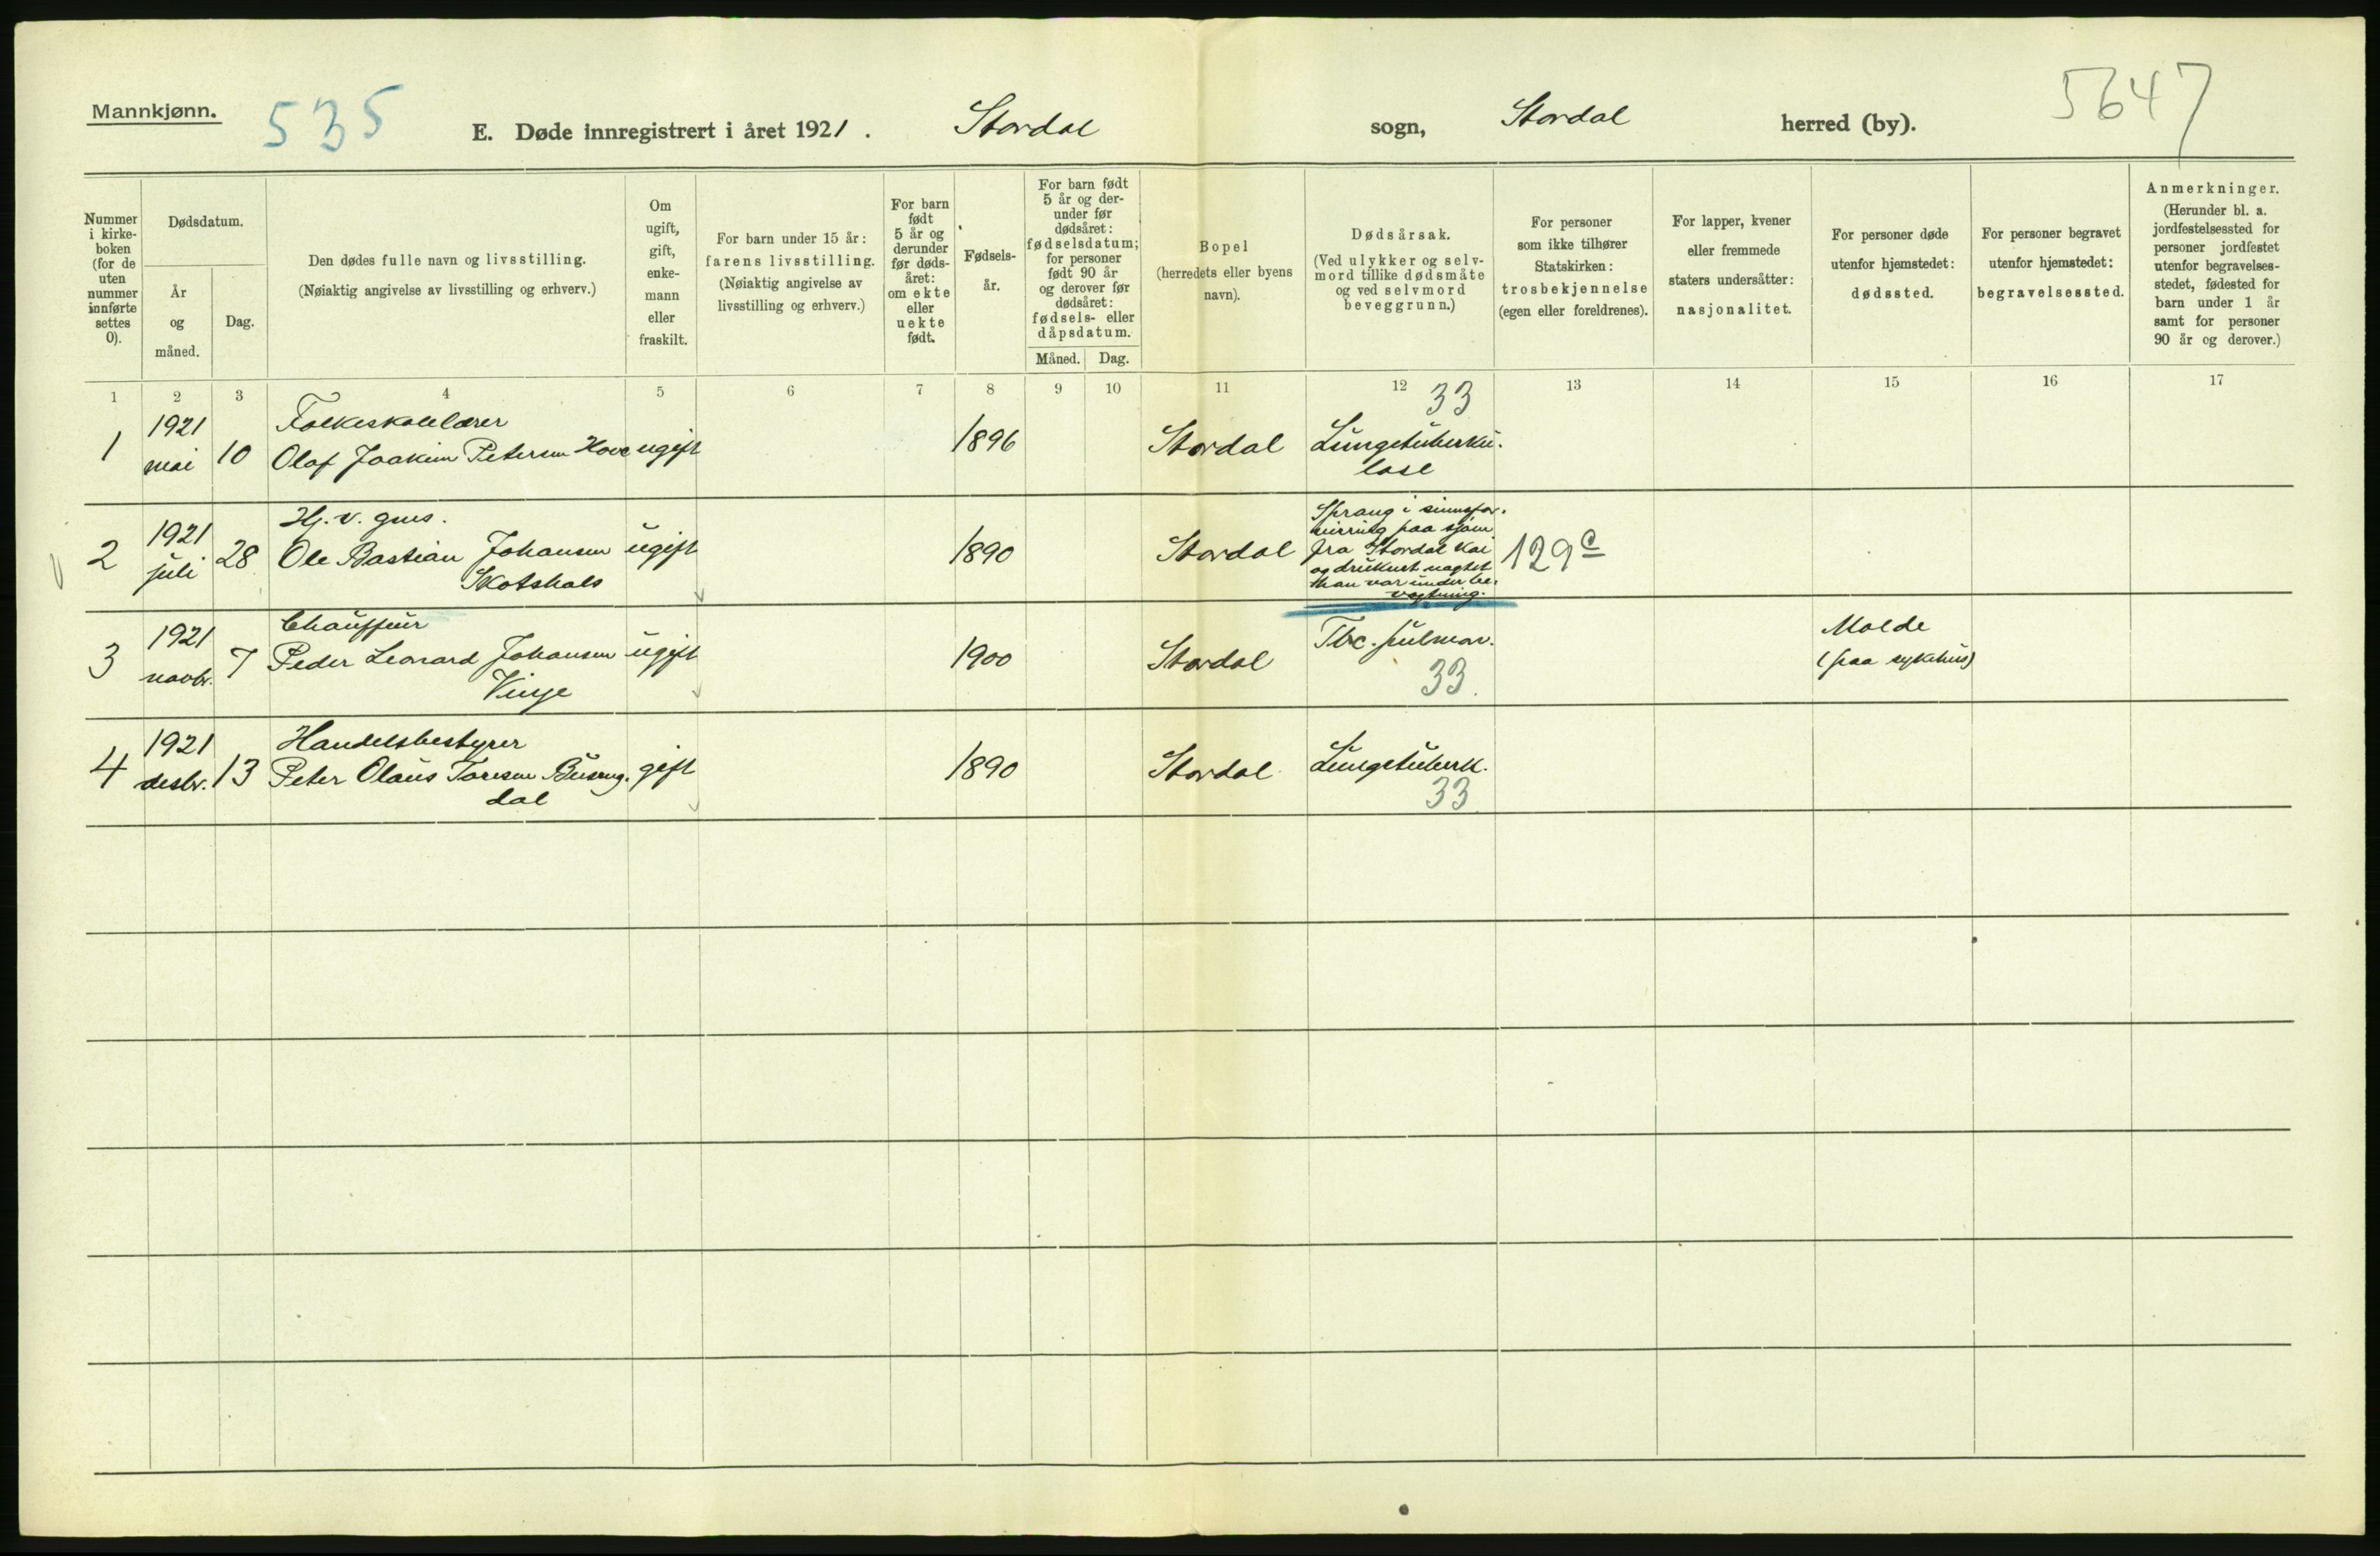 Mannkjønn.
535
E. Døde innregistrert i året 1921.
Stordal
sogn,
Stordal
herred (by).
5647
Nummer
i kirke-
boken
(for de
uten
nummer
innførte
settes
0).
Dødsdatum.
År
og
måned.
Dag.
Den dødes fulle navn og livsstilling.
(Nøiaktig angivelse av livsstilling og erhverv.)
Om
ugift,
gift,
enke-
mann
eller
fraskilt.
For barn under 15 år:
farens livsstilling.
(Nøiaktig angivelse av
livsstilling og erhverv.)
For barn
født
5 år og
derunder
før døds-
året:
om ekte
eller
uekte
født.
Fødsels-
år.
For barn født
5 år og der-
under før
dødsåret:
fødselsdatum;
for personer
født 90 år
og derover før
dødsåret:
fødsels- eller
dåpsdatum.
Måned.
Dag.
Bopel
(herredets eller byens
navn).
Dødsårsak.
(Ved ulykker og selv-
mord tillike dødsmåte
og ved selvmord
beveggrunn.)
For personer
som ikke tilhører
Statskirken:
trosbekjennelse
(egen eller foreldrenes).
For lapper, kvener
eller fremmede
staters undersåtter:
nasjonalitet.
For personer døde
utenfor hjemstedet:
dødssted.
For personer begravet
utenfor hjemstedet:
begravelsessted.
Anmerkninger.
(Herunder bl. a.
jordfestelsessted for
personer jordfestet
utenfor begravelses-
stedet, fødested for
barn under 1 år
samt for personer
90 år og derover.)
1 2 3 4 5 6 7 8 9 10 11 12 13 14 15 16 17
33
1921 Folkeskolelærer
1 mai 10 Olaf Joakim Petersen Hove ugift 1896 Stordal Lungetuberku-
lose
1921 Hj. v. grus.
2 juli 28 Ole Bastian Johansen ugift 1890 Stordal
Skotshals
Sprang i sinnsfor-
virring paa sjøen
fra Stordal kai
og druknet uagtet
han var under be-
vogtning.
129c
1921 Chauffeur
3 novbr. 7 Peder Leonard Johansen ugift 1900 Stordal Tbc. pulmon.
Vinje
33.
Molde
(paa sykehus)
1921 Handelsbestyrer
4 desbr. 13 Peter Olaus Toresen Buseng- gift 1890 Stordal Lungetuberk.
dal
33